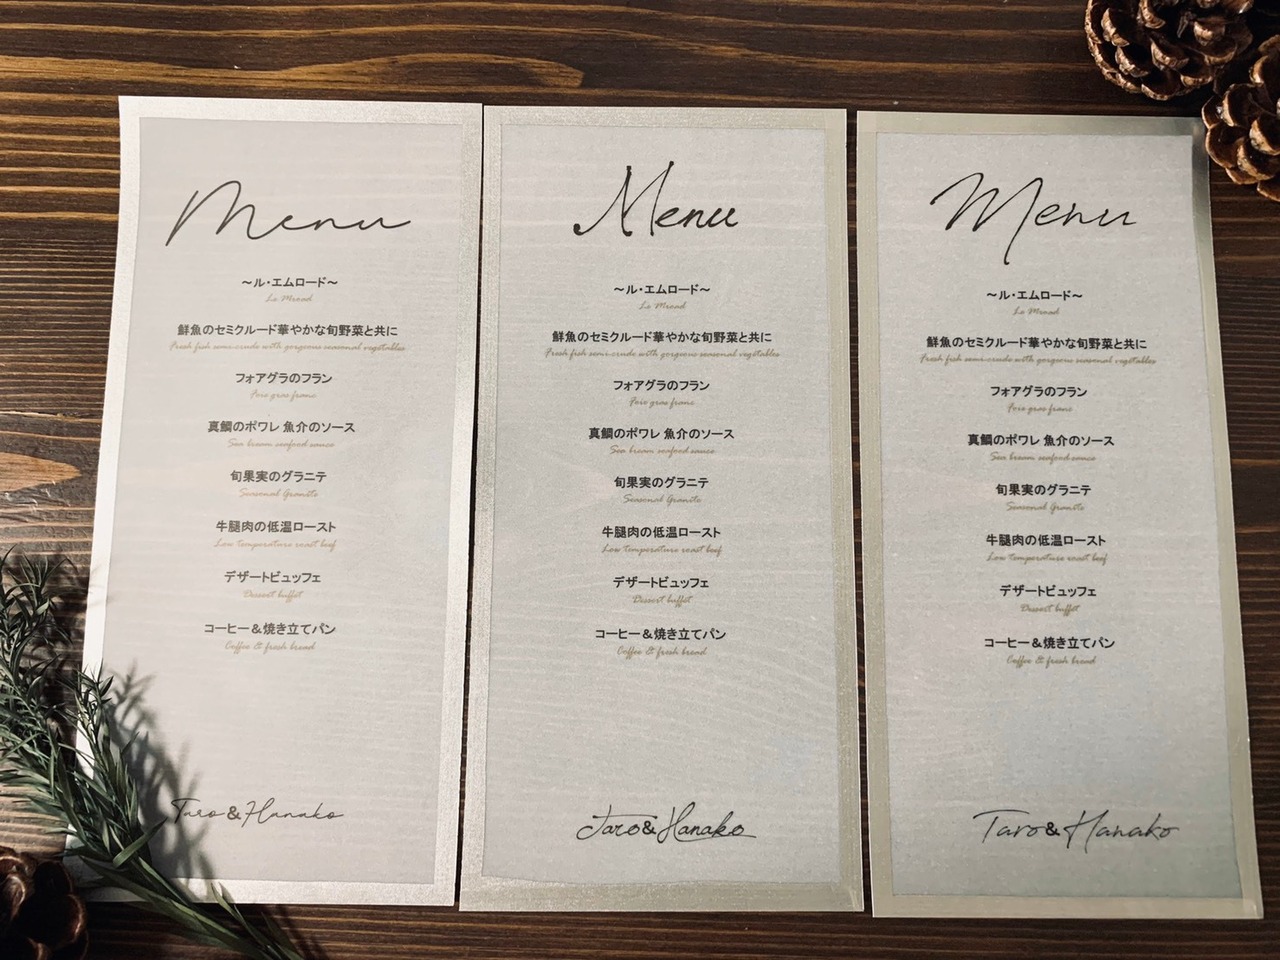 Menu
〜ル・エムロード〜
Le Mroad
鮮魚のセミクルード華やかな旬野菜と共に
Fresh fish semi-crude with gorgeous seasonal vegetables
フォアグラのフラン
Foie gras franc
真鯛のポワレ 魚介のソース
Sea bream seafood sauce
旬果実のグラニテ
Seasonal Granite
牛腿肉の低温ロースト
Low temperature roast beef
デザートビュッフェ
Dessert buffet
コーヒー＆焼き立てパン
Coffee & fresh bread
Taro&Hanako
Menu
〜ル・エムロード〜
Le Mroad
鮮魚のセミクルード華やかな旬野菜と共に
Fresh fish semi-crude with gorgeous seasonal vegetables
フォアグラのフラン
Foie gras franc
真鯛のポワレ 魚介のソース
Sea bream seafood sauce
旬果実のグラニテ
Seasonal Granite
牛腿肉の低温ロースト
Low temperature roast beef
デザートビュッフェ
Dessert buffet
コーヒー＆焼き立てパン
Coffee & fresh bread
Taro&Hanako
Menu
〜ル・エムロード〜
Le Mroad
鮮魚のセミクルード華やかな旬野菜と共に
Fresh fish semi-crude with gorgeous seasonal vegetables
フォアグラのフラン
Foie gras franc
真鯛のポワレ 魚介のソース
Sea bream seafood sauce
旬果実のグラニテ
Seasonal Granite
牛腿肉の低温ロースト
Low temperature roast beef
デザートビュッフェ
Dessert buffet
コーヒー＆焼き立てパン
Coffee & fresh bread
Taro&Hanako